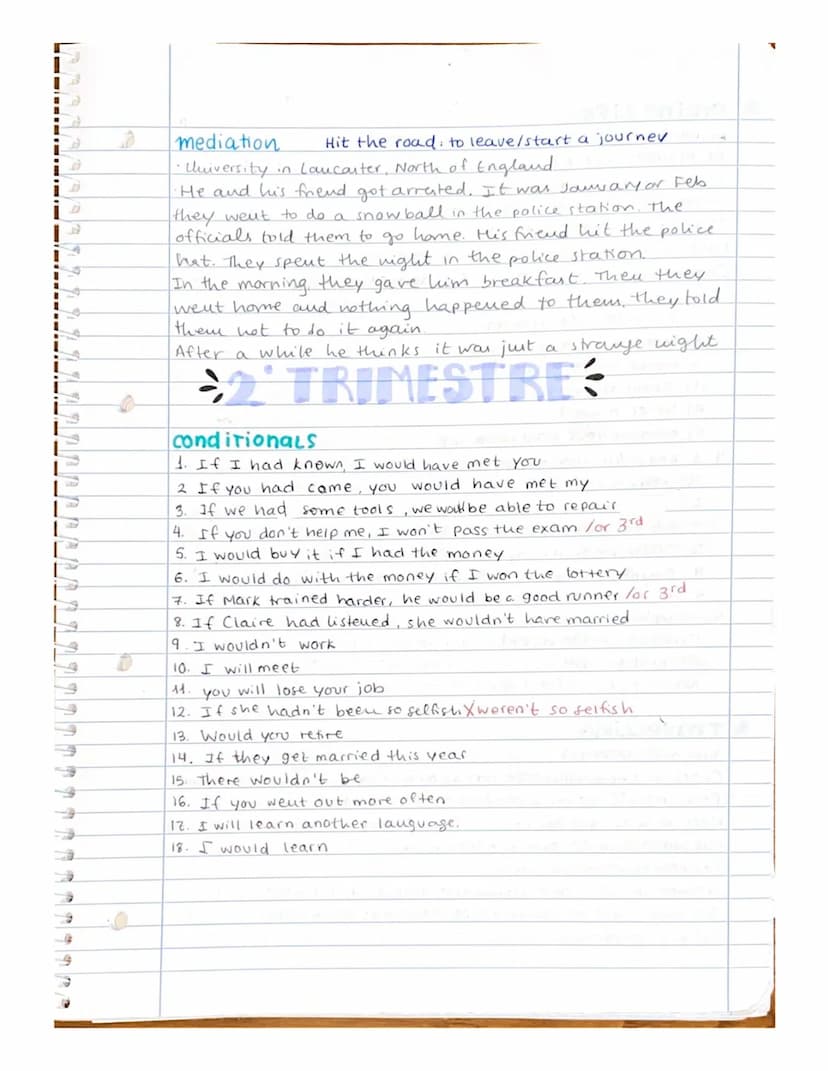 mediation Hit the road: to leave/start a journey
· University in Lancaster, North of England
· He and his friend got arrated. It was January or Feb
they went to do a snowball in the police station. The
officials told them to go home. His friend hit the police
hat. They spent the night in the police station.
In the morning, they gave him breakfast. Then they
went home and nothing happened to them, they told
them not to do it again.
After a while he thinks it was just a strange night
2º TRIMESTRE
conditionals
1. If I had known, I would have met you
2 If you had came, you would have met my
3. If we had some tools, we would be able to repair
4. If you don't help me, I won't pass the exam /or 3rd
5. I would buy it if I had the money
6. I would do with the money if I won the lottery
7. If Mark trained harder, he would be a good runner /or 3rd
8. If Claire had listened, she wouldn't have married
9. I wouldn't work
10. I will meet
11. you will lose your job
12. If she hadn't been so selfish X weren't so selfish
13. Would you retire
14. If they get married this year
15. There wouldn't be
16. If you went out more often
17. I will learn another language.
18. I would learn